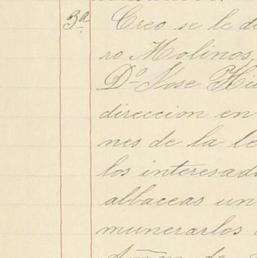 3ª Creo se le d
ro Molinos,
Dⁿ Jose
direccion en
nes de la le
los interesad
albaceas un
munerarlos